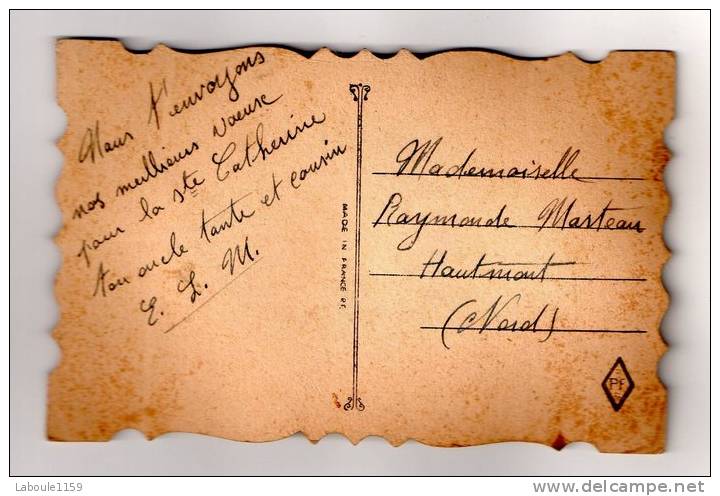 Nous t'envoyons
nos meilleurs voeux
pour la ste Catherine
ton oncle tante et cousin
E. L. M.
MADE IN FRANCE
Mademoiselle
Raymonde Marteau
Hautmont
(Nord)
Pf
Laboule1159
www.delcampe.net